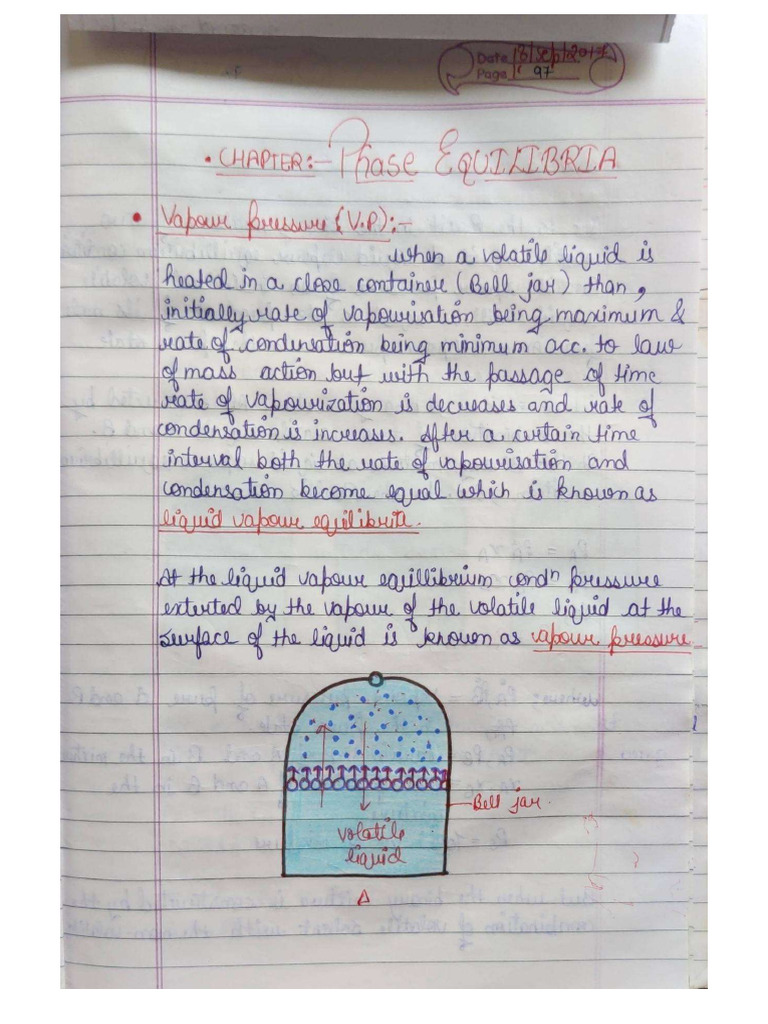 Date 18 Sept 2017
Page 97
• CHAPTER:- Phase EQUILIBRIA
• Vapour pressure (V.P):-
when a volatile liquid is
heated in a close container (Bell jar) than,
initially rate of vapourisation being maximum &
rate of condensation being minimum acc. to law
of mass action but with the passage of time
rate of vapourization is decreases and rate of
condensation is increases. After a certain time
interval both the rate of vapourisation and
condensation become equal which is known as
liquid vapour equilibria.
At the liquid vapour equillibrium condⁿ pressure
exterted by the vapour of the volatile liquid at the
surface of the liquid is known as vapour pressure
Bell jar.
volatile
liquid
Δ